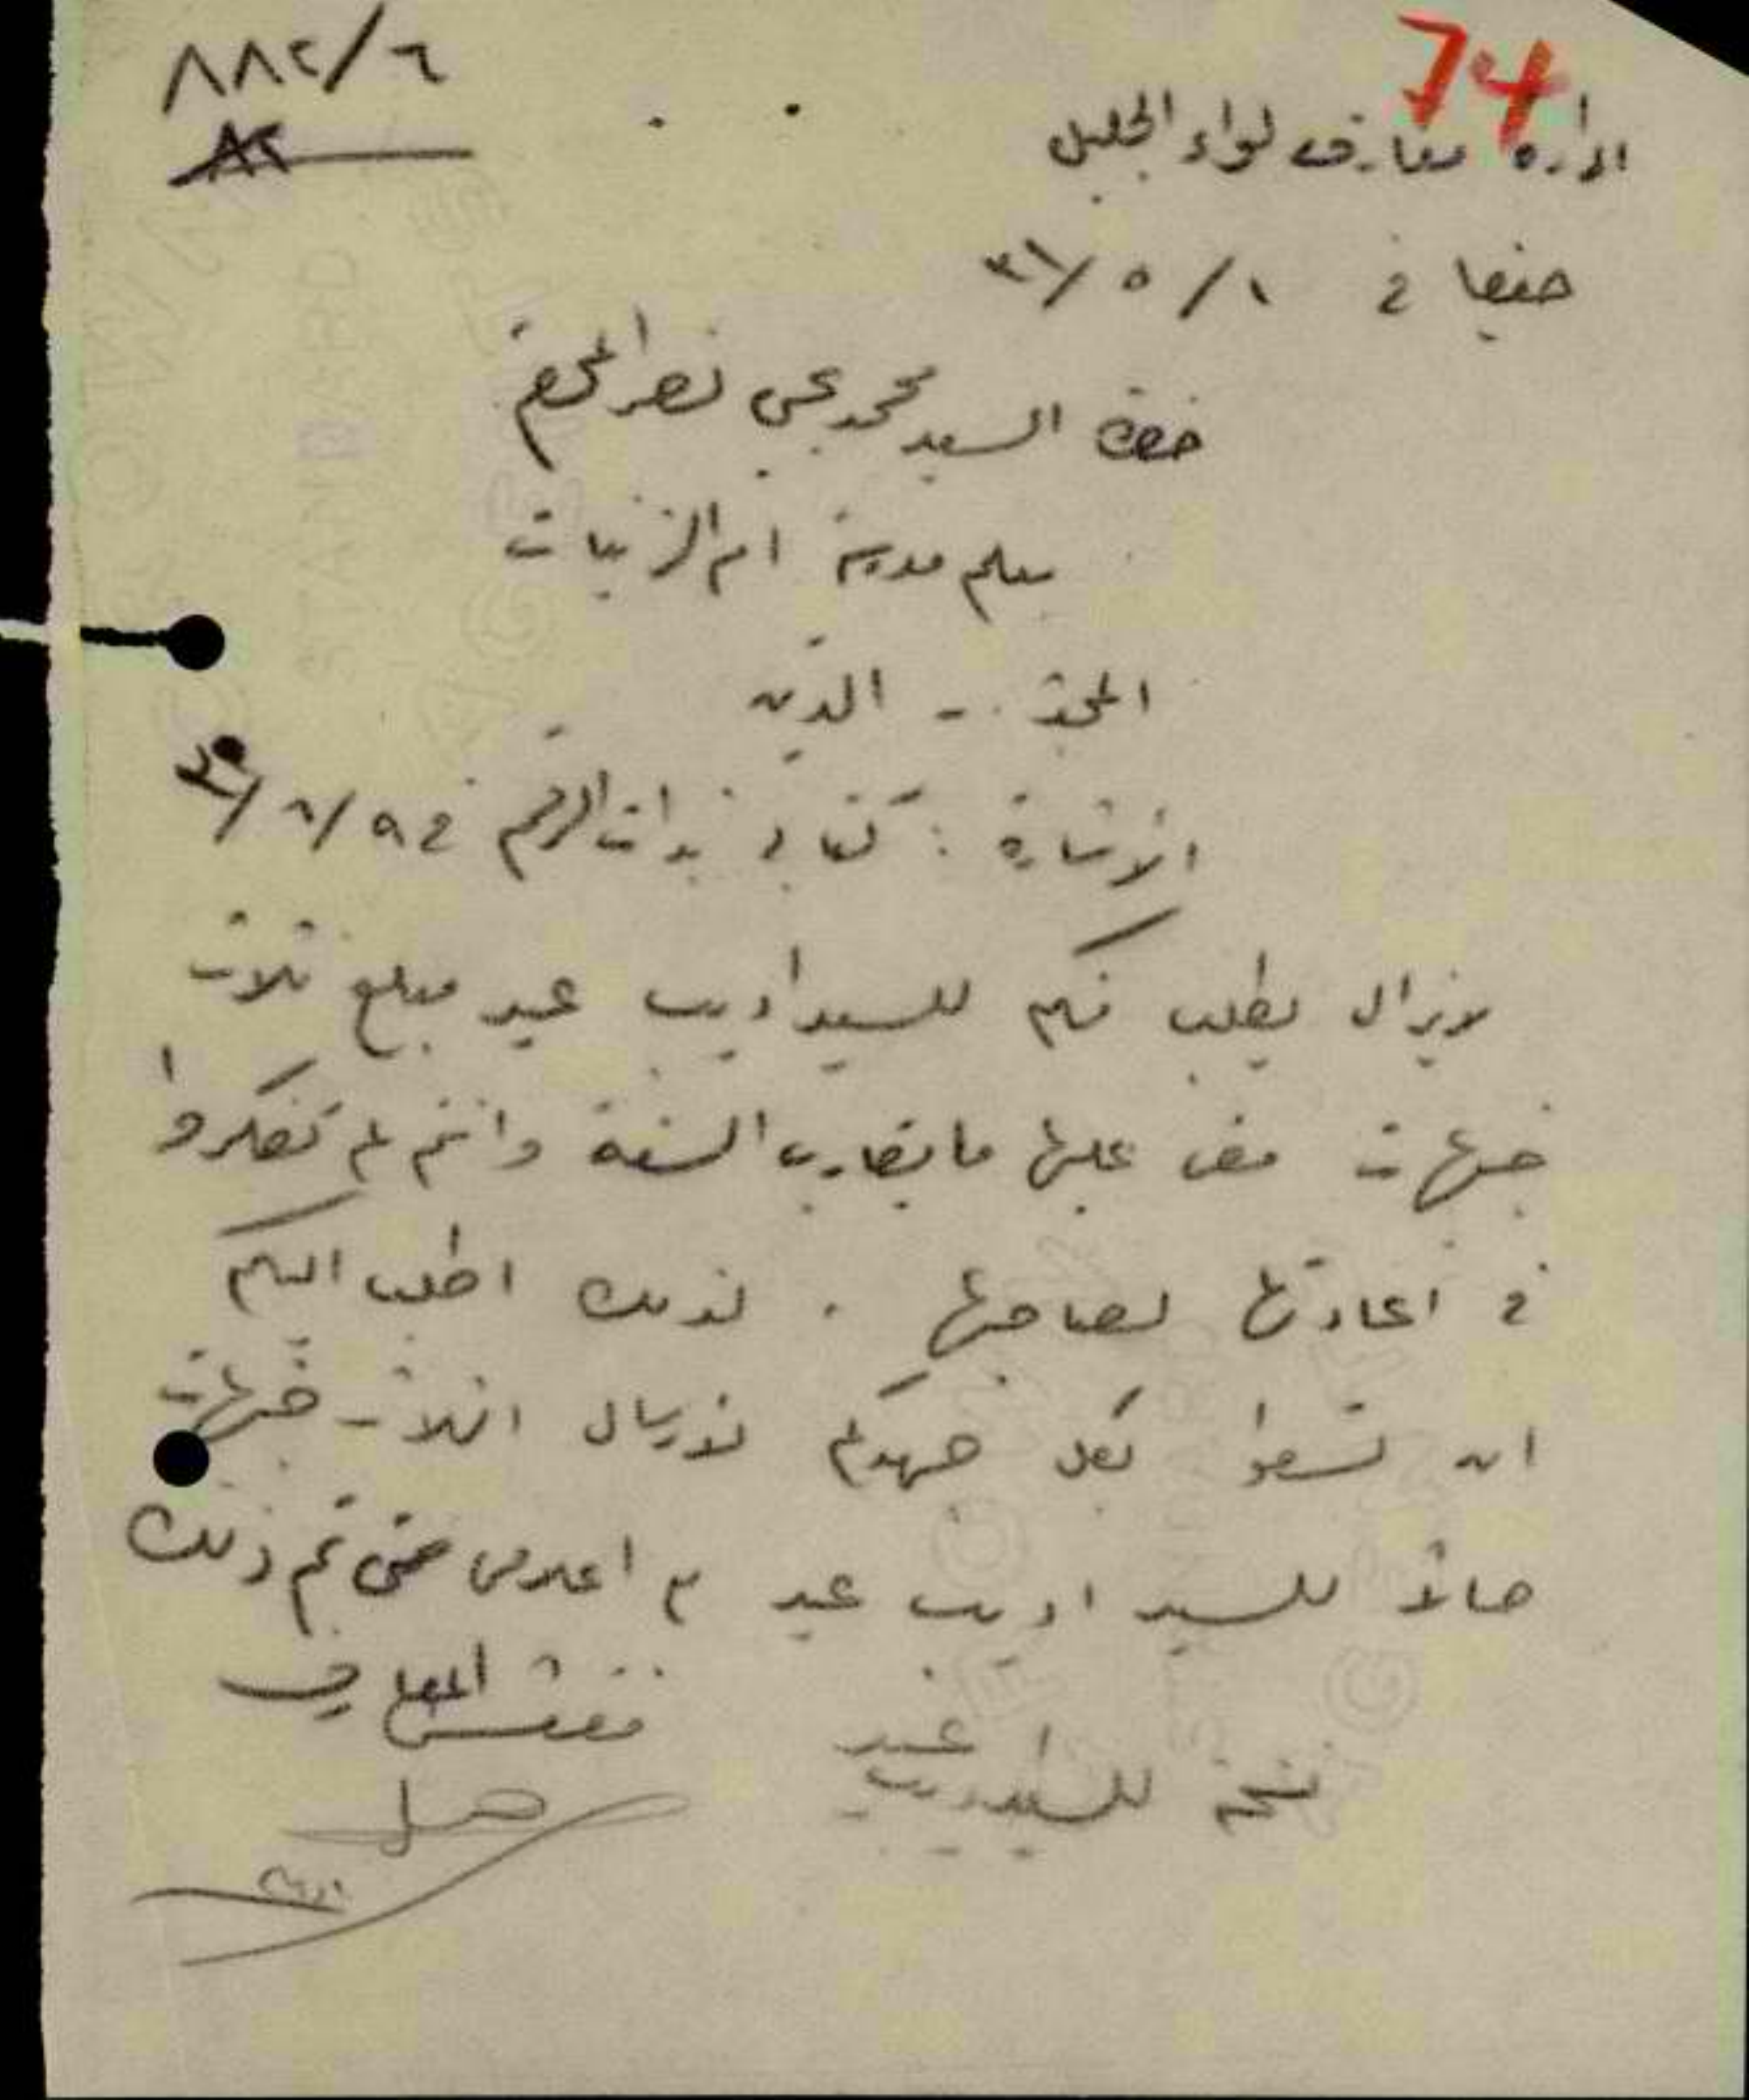 ٨٨٢/٦
74
ادارة معارف لواء الجليل
حيفا في ١/٥/٣١
حضرة السيد محمد يحيى نصر المحترم
معلم مدرسة ام الزينات
المبحث - الدين
الاشارة : كتابي بذات الرقم في ٩/٨/٣٠
لا يزال يطلب منكم للسيد اديب عيد مبلغ ثلاث
جنيهات مضى عليها ما يقارب السنة وانتم لم تفكروا
في اعادتها لصاحبها . لذلك اطلب اليكم
ان تسعوا بكل جهدكم لارسال الثلاث جنيهات
حالاً للسيد اديب عيد و اعلامي متى تم ذلك
مفتش المعارف
نسخة للسيد اديب عيد